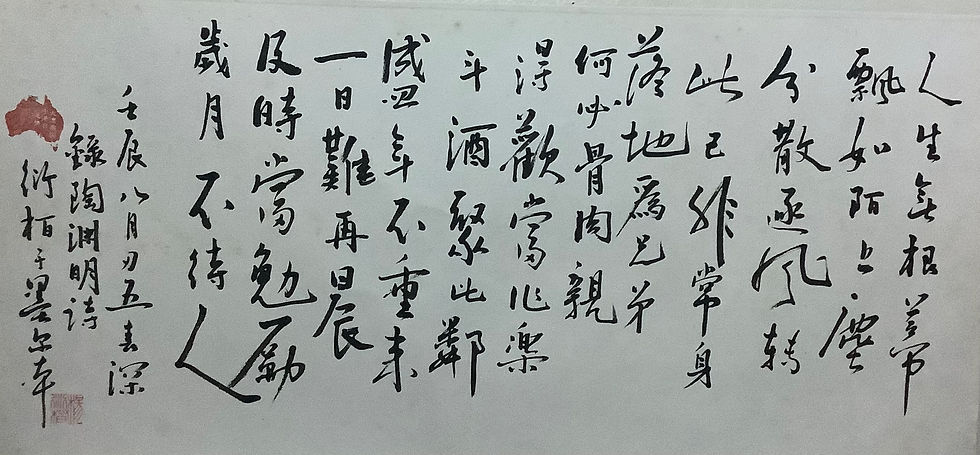 人生無根蒂
飄如陌上塵
分散逐風轉
此已非常身
落地爲兄弟
何必骨肉親
得歡當作樂
斗酒聚比鄰
盛年不重来
一日難再晨
及時當勉勵
歲月不待人
壬辰八月初五深
錄陶淵明詩
衍栢于墨尔本